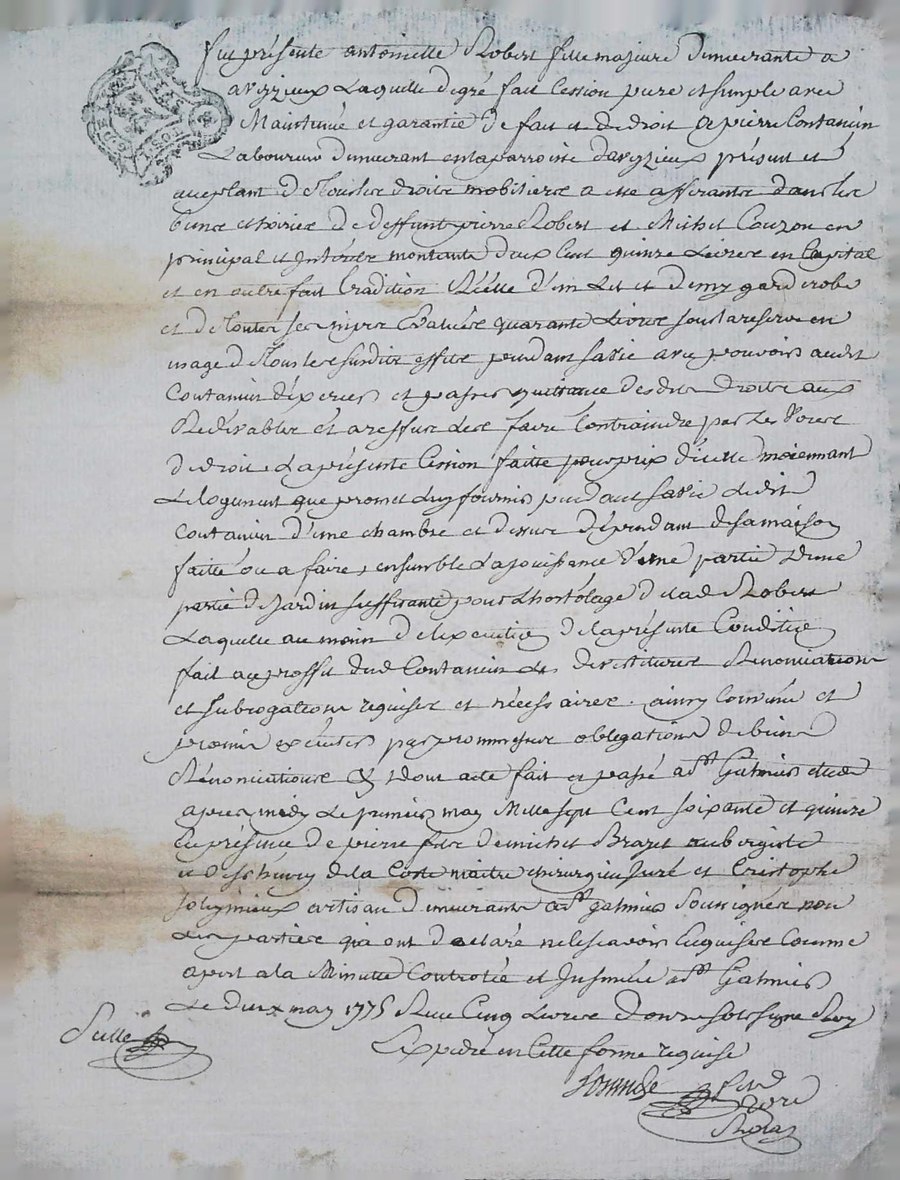 fut présente antoinette Robert fille majeure demeurante a
avezieux Laquelle degré fait Cession pure et simple avec
Maintenüe et garantie de fait et de droit a pierre Contamin
Laboureur demeurant en la parroisse d'avezieux présent et
acceptant de Tous les droits mobiliers a elle afferants dans les
biens et hoirie de deffunts pierre Robert et Michel Couzon en
principal et Interets montants deux Cent quinze Livres en Capital
et en outre fait tradition Réelle d'un Lit et demy garderobe
et de Toutes ses nipes Evaluées quarante Livres sous la reserve en
usage de Tous les susdits effets pendant sa vie avec pouvoir audit
Contamin d'exiger et passer quittance desdits droits aux
Redévables et a reffus de les faire Contraindre par Les Voyes
de droit, La présente Cession faitte pour prix d'icelle moiennant
Le logement que promet Luy fournir pendant sa vie Ledit
Contamin d'une chambre et dépendant de sa maison
faitte ou a faire, ensemble La jouissance d'une partie d'une
partie de jardin suffisante pour L'hortolage de lad Robert
Laquelle au moien de l'execution de la présente Condition
fait au proffit dud Contamin Les devestitures Renonciations
et subrogations requises et nécessaires. ainsy Convenu et
promis exécuter par promesses obligations de biens
Rénonciations & dont acte fait et passé a St Galmier etude
apres midy Le premier may Mille sept Cent soixante et quinze
En présence de pierre fils de michel Brazet aubergiste
de la Coste maitre chirurgien juré et Cristophe
artisan demeurants a St galmier Soussignés non
Les parties qui ont déclaré ne le sçavoir Enquises Comme
apert a la Minutte Controlée et Insinuée a St Galmier
Le deux may 1775 Reçu Cinq Livres douze sols signé Roy
Expedié en Cette forme requise